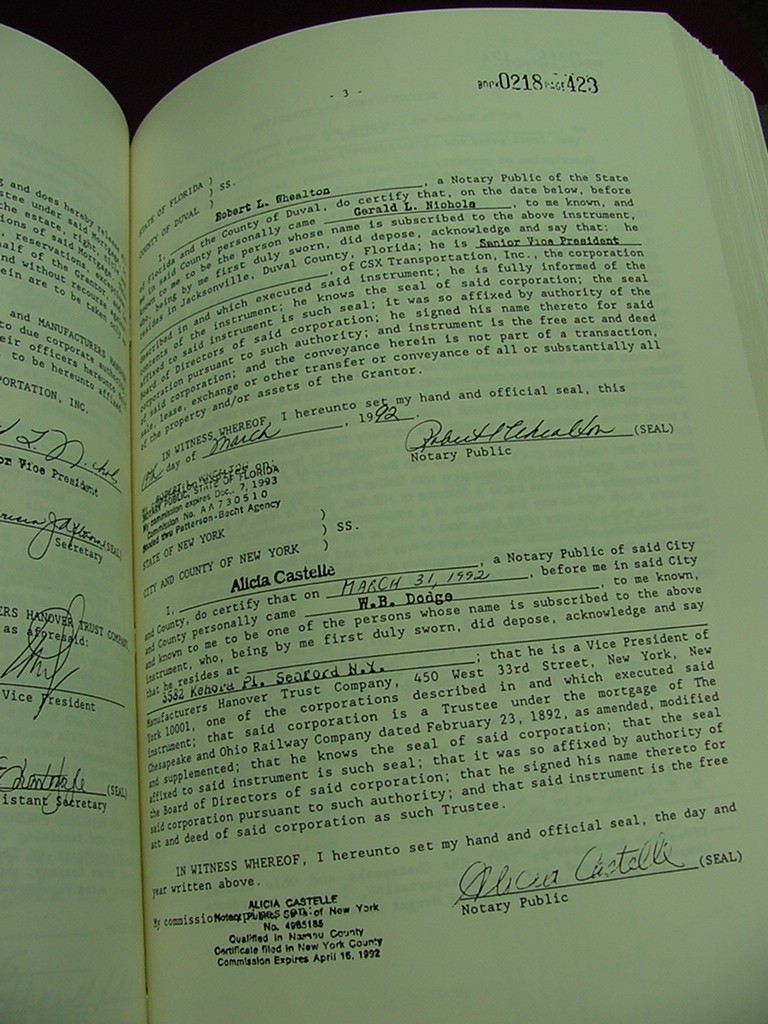 g and does hereby release
stee under said Mortgage
the estate, right, title
ions of said Mortgage
, reservations, exceptions
alf of the Grantor
nd without recourse
ein are to be taken only
and MANUFACTURERS HANOVER
to due corporate authority
eir officers hereunto
to be hereunto affixed
PORTATION, INC.
or Vice President
(SEAL)
Secretary
ERS HANOVER TRUST COMPANY
as aforesaid:
Vice President
(SEAL)
istant Secretary
- 3 -
BOOK 0218 PAGE 423
STATE OF FLORIDA )
) SS.
COUNTY OF DUVAL )
I, Robert L. Whealton, a Notary Public of the State
of Florida and the County of Duval, do certify that, on the date below, before
me in said County personally came Gerald L. Nichols, to me known, and
known to me to be the person whose name is subscribed to the above instrument,
who, being by me first duly sworn, did depose, acknowledge and say that: he
resides in Jacksonville, Duval County, Florida; he is Senior Vice President
, of CSX Transportation, Inc., the corporation
described in and which executed said instrument; he is fully informed of the
contents of the instrument; he knows the seal of said corporation; the seal
affixed to said instrument is such seal; it was so affixed by authority of the
Board of Directors of said corporation; he signed his name thereto for said
corporation pursuant to such authority; and instrument is the free act and deed
of said corporation; and the conveyance herein is not part of a transaction,
sale, lease, exchange or other transfer or conveyance of all or substantially all
of the property and/or assets of the Grantor.
IN WITNESS WHEREOF, I hereunto set my hand and official seal, this
day of March, 1992.
Robert L Whealton (SEAL)
Notary Public
NOTARY PUBLIC, STATE OF FLORIDA
My commission expires Dec. 7, 1993
Commission No. AA 730510
Bonded thru Patterson-Becht Agency
STATE OF NEW YORK )
) SS.
CITY AND COUNTY OF NEW YORK )
I, Alicia Castelle, a Notary Public of said City
and County, do certify that on MARCH 31, 1992, before me in said City
and County personally came W.B. Dodge, to me known,
and known to me to be one of the persons whose name is subscribed to the above
instrument, who, being by me first duly sworn, did depose, acknowledge and say
that he resides at
3582 Kenora Pl. Seaford N.Y.; that he is a Vice President of
Manufacturers Hanover Trust Company, 450 West 33rd Street, New York, New
York 10001, one of the corporations described in and which executed said
instrument; that said corporation is a Trustee under the mortgage of The
Chesapeake and Ohio Railway Company dated February 23, 1892, as amended, modified
and supplemented; that he knows the seal of said corporation; that the seal
affixed to said instrument is such seal; that it was so affixed by authority of
the Board of Directors of said corporation; that he signed his name thereto for
said corporation pursuant to such authority; and that said instrument is the free
act and deed of said corporation as such Trustee.
IN WITNESS WHEREOF, I hereunto set my hand and official seal, the day and
year written above.
Alicia Castelle (SEAL)
Notary Public
ALICIA CASTELLE
My commission Notary Public, State of New York
No. 4985185
Qualified in Nassau County
Certificate filed in New York County
Commission Expires April 16, 1992